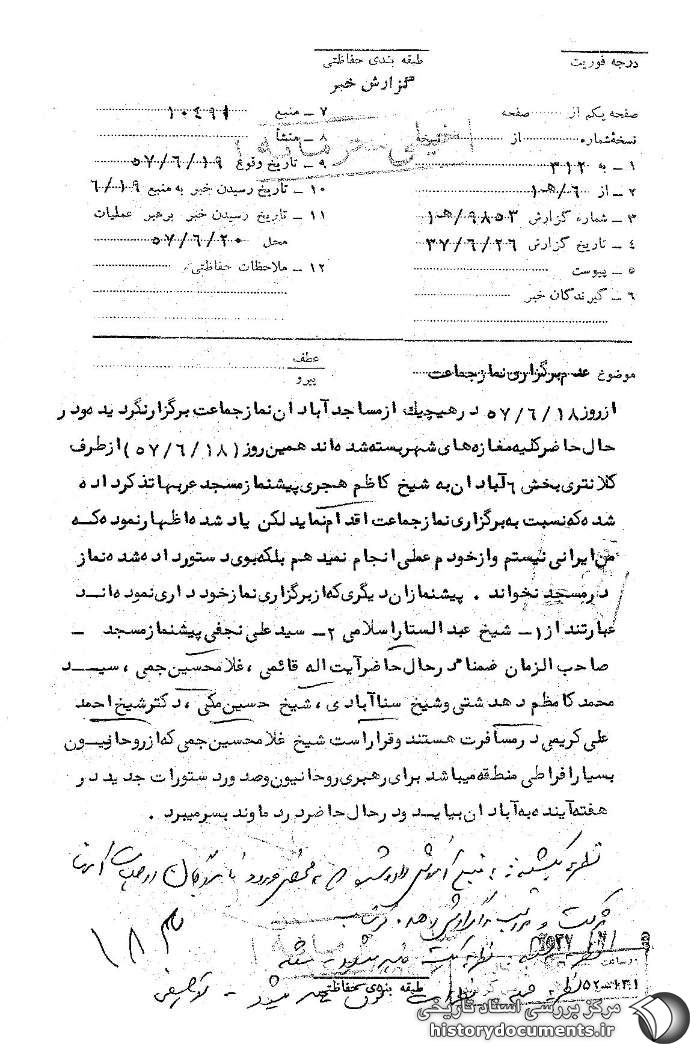 درجه فوریت
طبقه بندی حفاظتی
گزارش خبر
صفحه یکم از صفحه
نسخه شماره از نسخه
۱ ـ به ۳۱۲
۲ ـ از ۶/ه‍۱
۳ ـ شماره گزارش ۹۸۵۳/ه‍۱
۴ ـ تاریخ گزارش ۳۷/۶/۲۶
۵ ـ پیوست
۶ ـ گیرندگان خبر
۷ ـ منبع ۱۰۴۹۱
۸ ـ منشأ
۹ ـ تاریخ وقوع ۵۷/۶/۱۹
۱۰ ـ تاریخ رسیدن خبر به منبع ۶/۱۹
۱۱ ـ تاریخ رسیدن خبر برهبر عملیات
محل ۵۷/۶/۲۰
۱۲ ـ ملاحظات حفاظتی
خیلی محرمانه
موضوع عدم برگزاری نماز جماعت
عطف
پیرو
از روز ۵۷/۶/۱۸ در هیچیك از مساجد آبادان نماز جماعت برگزار نگردیده و در
حال حاضر کلیه مغازه های شهر بسته شده اند همین روز (۵۷/۶/۱۸) از طرف
کلانتری بخش ۶ آبادان به شیخ کاظم هجری پیشنماز مسجد عربها تذکر داده
شده که نسبت به برگزاری نماز جماعت اقدام نماید لکن یاد شده اظهار نموده که
من ایرانی نیستم و از خودم عملی انجام نمیدهم بلکه بوی دستور داده شده نماز
در مسجد نخواند . پیشنمازان دیگری که از برگزاری نماز خودداری نموده اند
عبارتند از ۱ـ شیخ عبدالستار اسلامی ۲ـ سید علی نجفی پیشنماز مسجد ـ
صاحب الزمان ضمنا در حال حاضر آیت اله قائمی ، غلامحسین جمی ، سید
محمد کاظم دهدشتی و شیخ سنا آبادی ، شیخ حسین مکی ، دکتر شیخ احمد
علی کریمی در مسافرت هستند و قرار است شیخ غلامحسین جمی که از روحانیون
بسیار افراطی منطقه میباشد برای رهبری روحانیون و صدور دستورات جدید در
هفته آینده به آبادان بیاید و در حال حاضر در دماوند بسر میبرد .
نظریه یکشنبه : منبع آموزش داده شد
شرکت و مراتب را گزارش دهد .
۱۸۳
طبقه بندی حفاظتی
مرکز بررسی اسناد تاریخی
historydocuments.ir